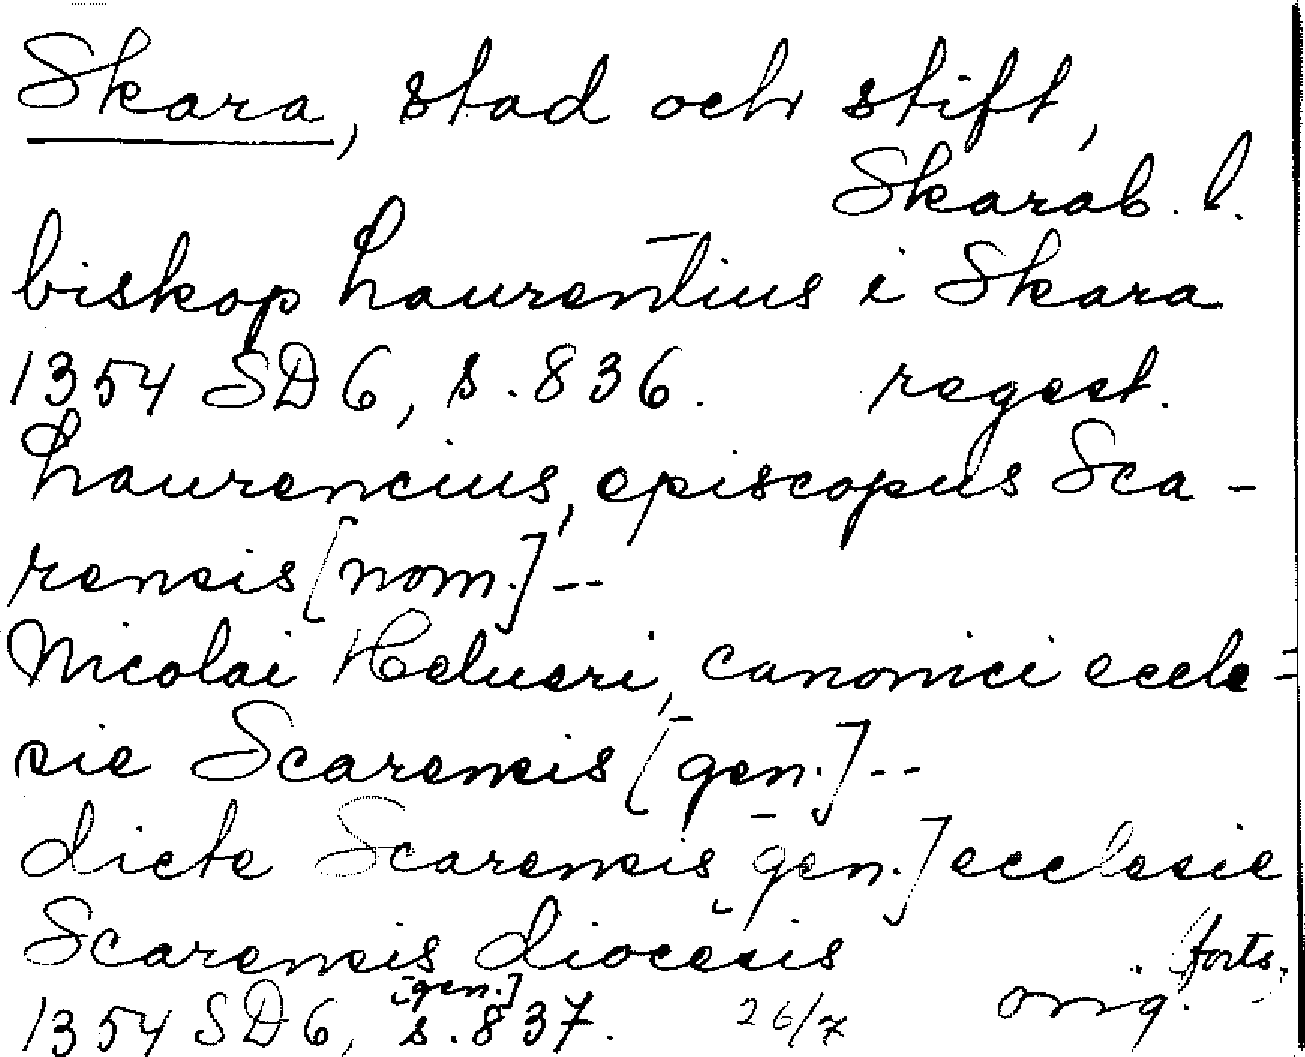 Skara, stad och stift,
Skarab. l.
biskop Laurentius i Skara
1354 SD 6, s. 836. regest.
Laurencius, episcopus Sca-
rensis [nom.] --
Nicolai Helueri, canonici eccle-
sie Scarensis [gen.] --
dicte Scarensis [gen.] ecclesie
Scarensis diocesis
[gen.] (forts.
1354 SD 6, s. 837. 26/7 orig.